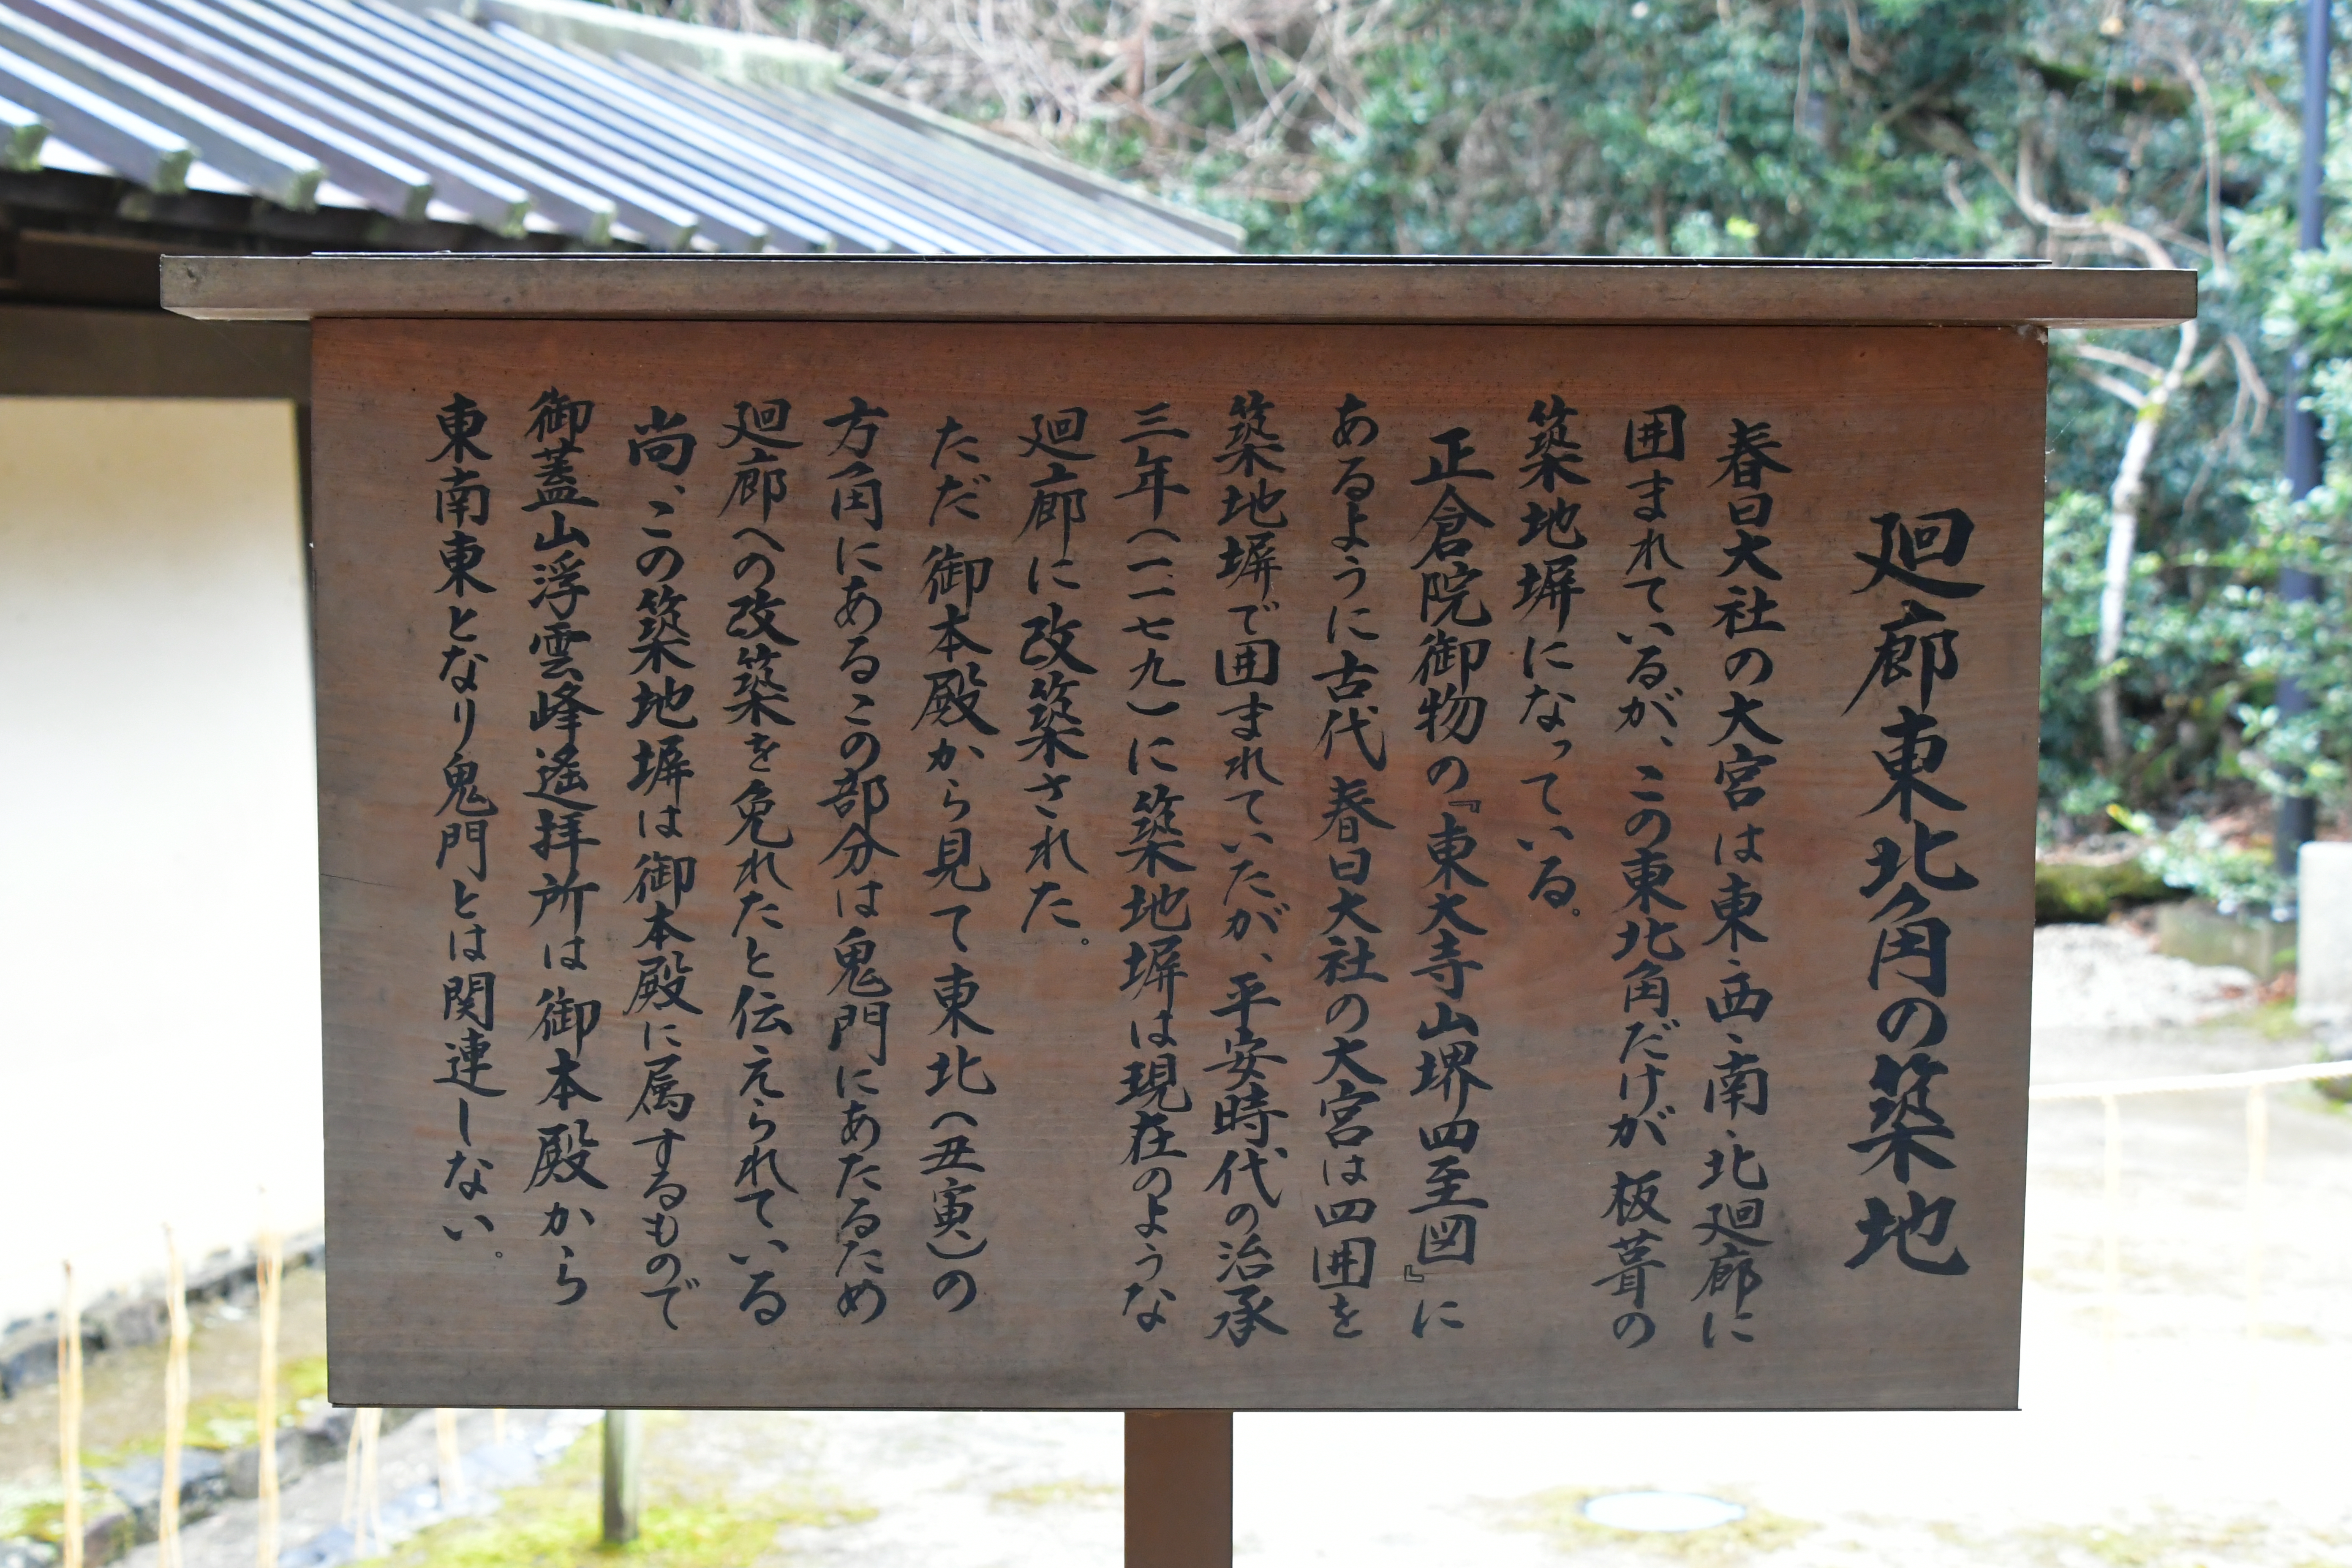 廻廊東北角の築地
春日大社の大宮は東、西、南、北廻廊に
囲まれているが、この東北角だけが板葺の
築地塀になっている。
正倉院御物の『東大寺山堺四至図』に
あるように古代春日大社の大宮は四囲を
築地塀で囲まれていたが、平安時代の治承
三年(一一七九)に築地塀は現在のような
廻廊に改築された。
ただ御本殿から見て東北(丑寅)の
方角にあるこの部分は鬼門にあたるため
廻廊への改築を免れたと伝えられている
尚、この築地塀は御本殿に属するもので
御蓋山浮雲峰遙拝所は御本殿から
東南東となり鬼門とは関連しない。